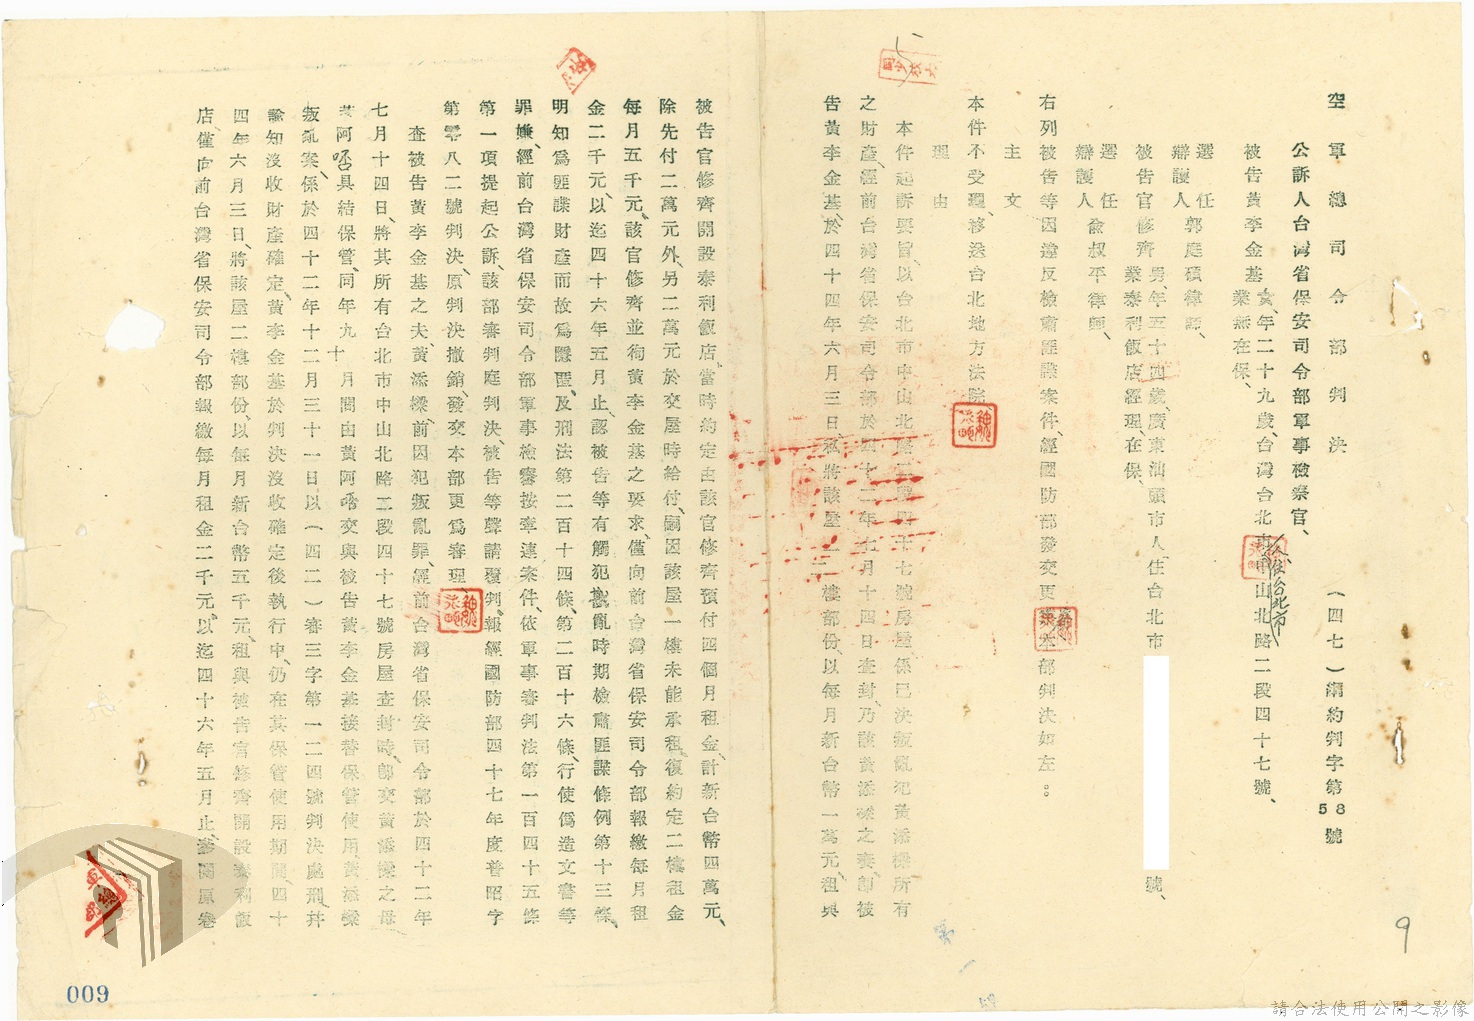 空軍總司令部判決　（四七）綱約判字第58號
公訴人台灣省保安司令部軍事檢察官、
被告黃李金基　女、年二十九歲、台灣台北市中山北路二段四十七號、
仝住台北市
業無在保、
選任辯護人　郭庭碩律師、
被告官修齊　男、年五十四歲、廣東汕頭市人、住台北市　號、
業泰利飯店經理、在保、
選任辯護人　俞叔平律師、
右列被告等因違反檢肅匪諜案件、經國防部發交更審、本部判決如左：
主文
本件不受理、移送台北地方法院、
理由
本件起訴要旨、以台北市中山北路二段四十七號房屋、係已決叛亂犯黃添樑所有
之財產、經前台灣省保安司令部於四十二年七月十四日查封、乃該黃添樑之妻、即被
告黃李金基、於四十四年六月三日、私將該屋一二樓部份、以每月新台幣一萬元、租與
被告官修齊開設泰利飯店、當時約定由該官修齊預付四個月租金、計新台幣四萬元、
除先付二萬元外、另二萬元於交屋時給付、嗣因該屋一樓未能承租、復約定二樓租金
每月五千元、該官修齊並徇黃李金基之要求、僅向前台灣省保安司令部報繳每月租
金二千元、以迄四十六年五月止、認被告等有觸犯戡亂時期檢肅匪諜條例第十三條、
明知為匪諜財產而故為隱匿、及刑法第二百十四條、第二百十六條、行使偽造文書等
罪嫌、經前台灣省保安司令部軍事檢察按牽連案件、依軍事審判法第一百四十五條
第一項提起公訴、該部審判庭判決、被告等聲請覆判、報經國防部四十七年度普昭字
第零八二號判決、原判決撤銷、發交本部更為審理、
查被告黃李金基之夫、黃添樑、前因犯叛亂罪、經前台灣省保安司令部於四十二年
七月十四日、將其所有台北市中山北路二段四十七號房屋查封時、即交黃添樑之母
黃阿呅具結保管、同年九十月間由黃阿呅交與被告黃李金基接替保管使用、黃添樑
叛亂案、係於四十二年十二月三十一日以（四二）審三字第一二四號判決處刑、并
諭知沒收財產確定、黃李金基於判決沒收確定後執行中、仍在其保管使用期間四十
四年六月三日、將該屋二樓部份、以每月新台幣五千元、租與被告官修齊開設泰利飯
店、僅向前台灣省保安司令部報繳每月租金二千元、以迄四十六年五月止、業閱原卷
9
009
請合法使用公開之影像